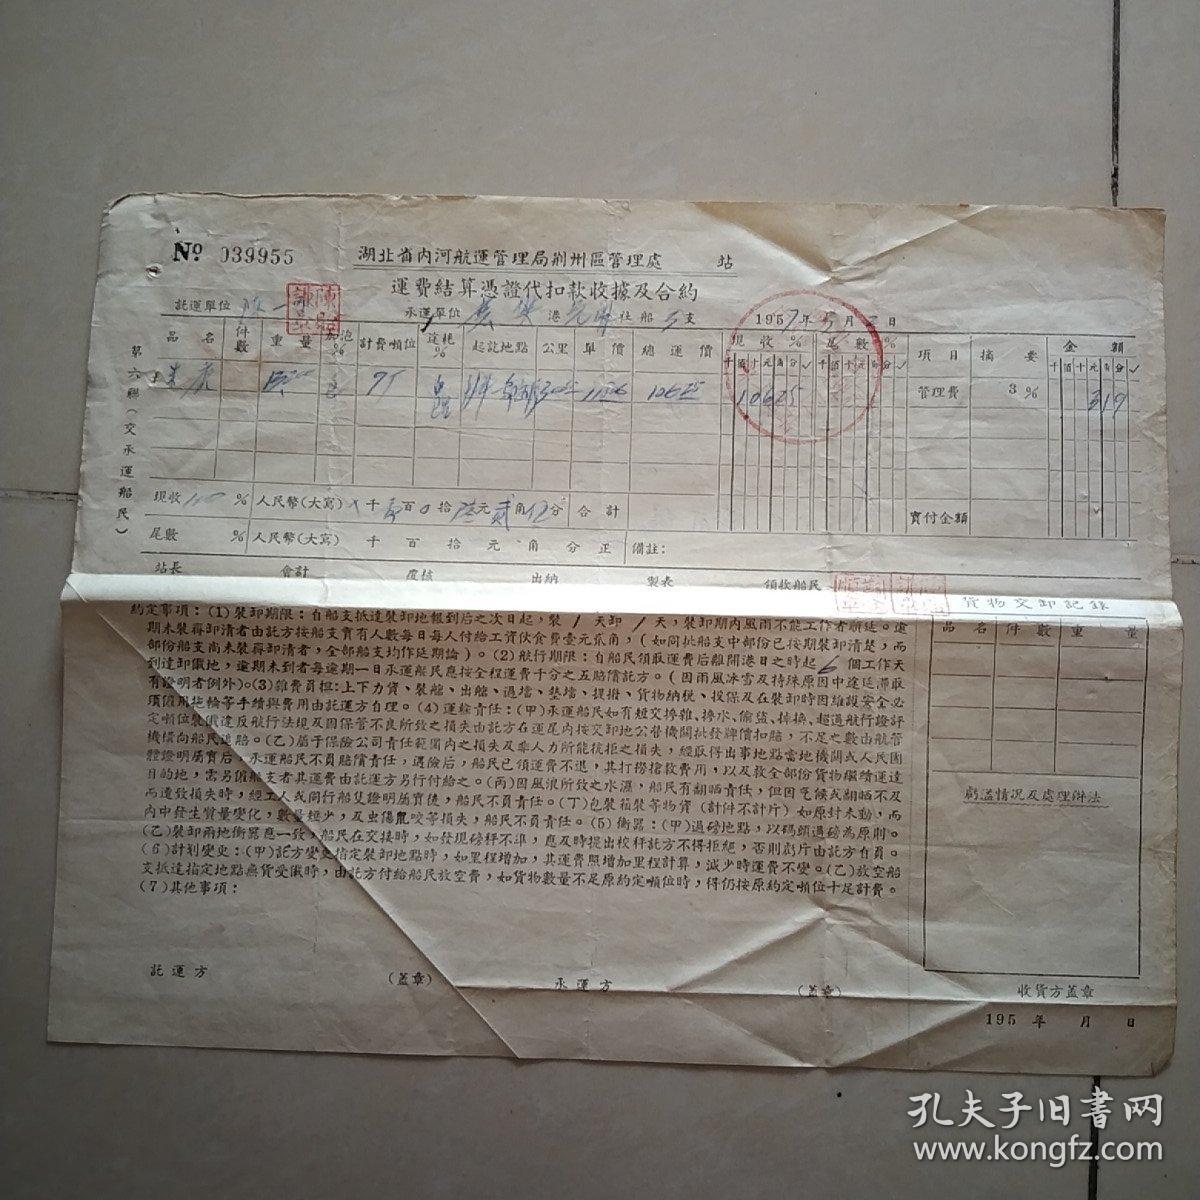 № 039955
湖北省内河航運管理局荆州區管理處 站
運費結算憑證代扣款收據及合約
託運單位 承運單位 港 船 支 1957年5月 日
第六聯(交承運船民)
品名 件數 重量 計費噸位 起訖地點 公里 單價 總運價 現收% 尾數% 項目 摘要 金額
千佰十元角分✓ 千佰十元角分✓ 千佰十元角分✓
95 10625 管理費 3% 319
現收100% 人民幣(大寫) 千壹百0拾陸元貳角伍分 合計 實付金額
尾數 % 人民幣(大寫) 千百拾元角分正 備註:
站長 會計 覆核 出納 製表 領款船民
貨物交卸記錄
品名 件數 重量
約定事項:(1)裝卸期限:自船支抵達裝卸地報到后之次日起,裝/天卸/天,裝卸期内風雨不能工作者順延。逾
期未裝卸清者由託方按船支實有人數每日每人付給工資伙食費壹元貳角,(如同批船支中部份已按期裝卸清楚,而
部份船支尚未裝卸清者,全部船支均作延期論)。(2)航行期限:自船民領取運費后離開港日之時起6個工作天
到達卸儎地,逾期未到者每逾期一日承運船民應按全程運費千分之五賠償託方。(因雨風冰雪及特殊原因中途延滯取
有證明者例外)。(3)雜費負担:上下力資、裝艙、出艙、過擋、墊擋、提撥、貨物納稅、投保及在裝卸時因維護安全必
須僱用拖輪等手續與費用由託運方自理。(4)運輸責任:(甲)承運船民如有短交摻雜、摻水、偷盜、掉換、超過航行證評
定噸位裝儎違反航行法規及因保管不良所致之損失由託方在運尾内按交卸地公營機關批發牌價扣賠,不足之數由航管
機構向船民追賠。(乙)屬于保險公司責任範圍内之損失及非人力所能抗拒之損失,經取得出事地點當地機關或人民團
體證明屬實后,承運船民不負賠償責任,遇險后,船民已領運費不退,其打撈搶救費用,以及救全部份貨物繼續運達
目的地,需另僱船支者其運費由託運方另行付給之。(丙)因風浪所致之水濕,船民有翻晒責任,但因氣候或翻晒不及
而遭致損失時,經工人或同行船隻證明屬實後,船民不負責任。(丁)包裝箱裝等物資(計件不計斤)如原封未動,而
内中發生質量變化,數量短少,及虫傷鼠咬等損失,船民不負責任。(5)衡器:(甲)過磅地點,以碼頭過磅為原則。
(乙)裝卸兩地衡器應一致,船民在交接時,如發現磅秤不準,應及時提出校秤託方不得拒絕,否則虧斤由託方自負。
(6)計划變更:(甲)託方變更指定裝卸地點時,如里程增加,其運費照增加里程計算,減少時運費不變。(乙)放空船
支抵達指定地點無貨受儎時,由託方付給船民放空費,如貨物數量不足原約定噸位時,得仍按原約定噸位十足計費。
(7)其他事項:
虧溢情况及處理辦法
託運方 (蓋章) 承運方 (蓋章) 收貨方蓋章
195 年 月 日
孔夫子旧書网
www.kongfz.com